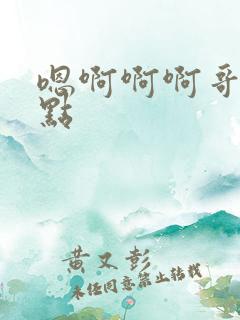 嗯啊啊啊哥
點
黄又彭
未经同意禁止转载